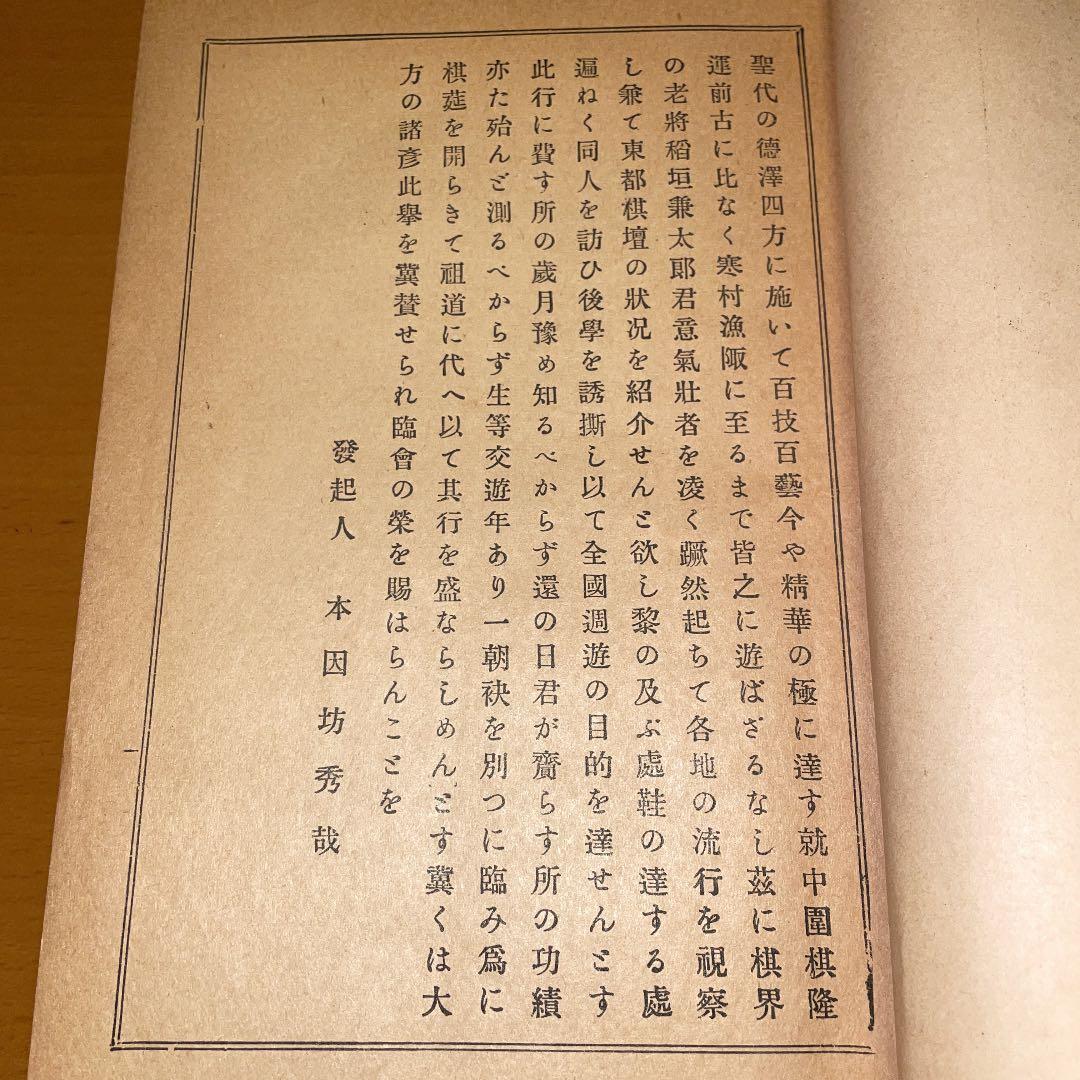 聖代の德澤四方に施いて百技百藝今や精華の極に達す就中圍棋隆
運前古に比なく寒村漁陬に至るまで皆之に遊ばざるなし茲に棋界
の老將稻垣兼太郎君意氣壯者を凌く蹶然起ちて各地の流行を視察
し兼て東都棋壇の狀况を紹介せんと欲し黎の及ぶ處鞋の達する處
遍ねく同人を訪ひ後學を誘撕し以て全國週遊の目的を達せんとす
此行に費す所の歲月豫め知るべからず還の日君が齎らす所の功績
亦た殆んど測るべからず生等交遊年あり一朝袂を別つに臨み爲に
棋莚を開らきて祖道に代へ以て其行を盛ならしめんとす冀くは大
方の諸彥此擧を冀賛せられ臨會の榮を賜はらんことを
發起人　本因坊秀哉